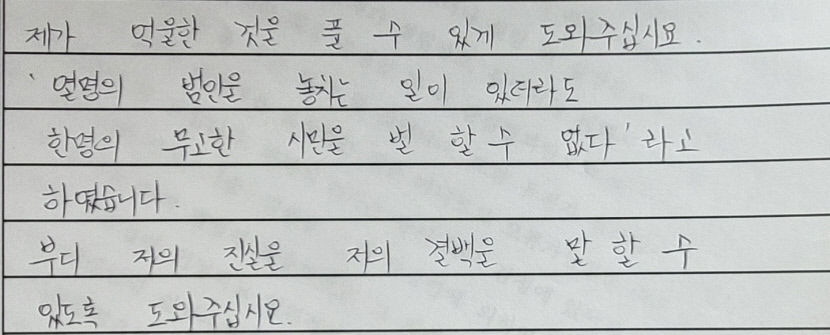 제가 억울한 것을 풀 수 있게 도와주십시요.
'열명의 범인을 놓치는 일이 있더라도
한명의 무고한 시민을 벌 할 수 없다' 라고
하였습니다.
부디 저의 진실을 저의 결백을 말 할 수
있도록 도와주십시요.